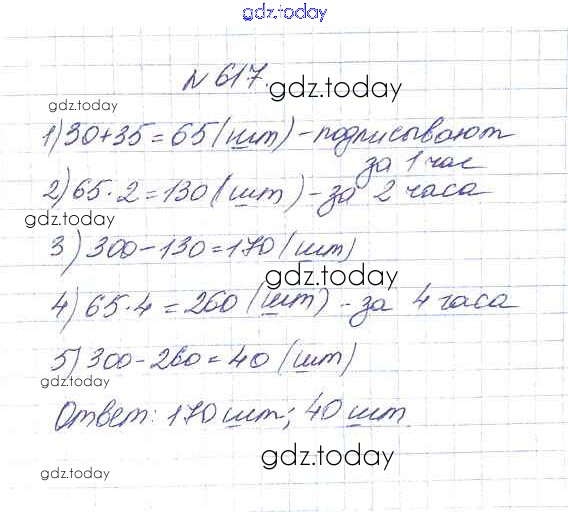 gdz.today
№ 617.
gdz.today
gdz.today
1) 30+35=65 (шт) - подписывают
за 1 час
2) 65·2=130 (шт) - за 2 часа
gdz.today
3) 300-130=170 (шт)
gdz.today
4) 65·4=260 (шт) - за 4 часа
5) 300-260=40 (шт)
gdz.today
Ответ: 170 шт; 40 шт.
gdz.today
gdz.today